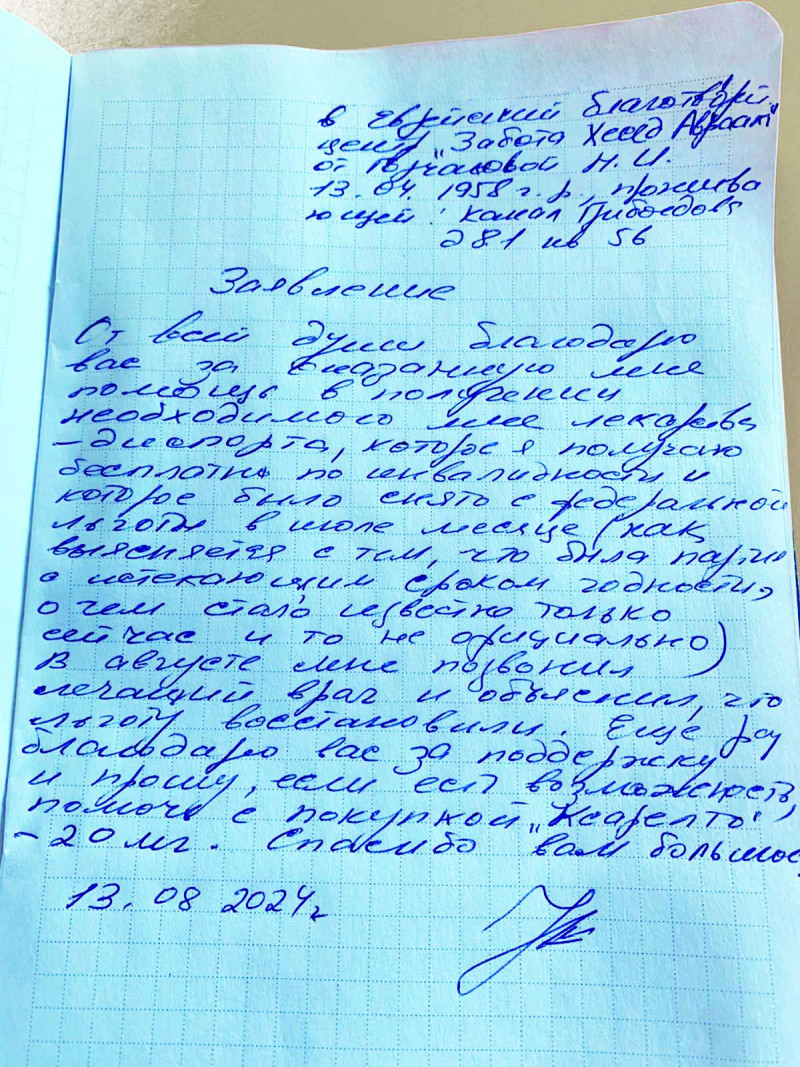 в Еврейский благотвор.
центр "Забота Хесед Авраам"
от Н. И.
13. 04. 1958 г. р., прожива
ющей: канал Грибоедова
д 81 кв 56
Заявление
От всей души благодарю
вас за оказанную мне
помощь в получении
необходимого мне лекарства
– диспорта, которое я получаю
бесплатно по инвалидности и
которое было снято с федеральной
льготы в июле месяце (как
выясняется с тем, что была партия
с истекающим сроком годности,
о чем стало известно только
сейчас и то не официально)
В августе мне позвонил
лечащий врач и объяснил, что
льготу восстановили. Еще раз
благодарю вас за поддержку
и прошу, если есть возможность,
помочь с покупкой „Ксарелто"
– 20 мг. Спасибо вам большое
13. 08 2024 г